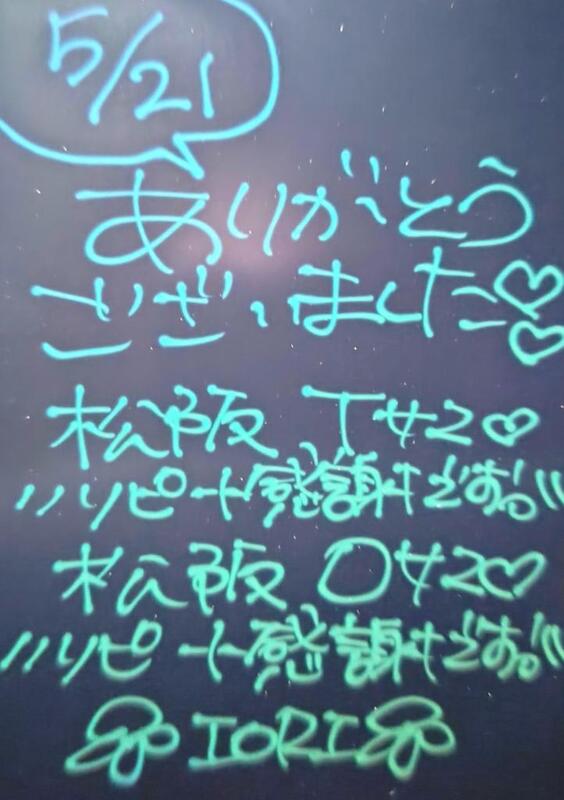 5/21
ありがとう
ございました♡♡
松阪 Tサン♡
\\リピート感謝です//
松阪 Oサン♡
\\リピート感謝です//
IORI